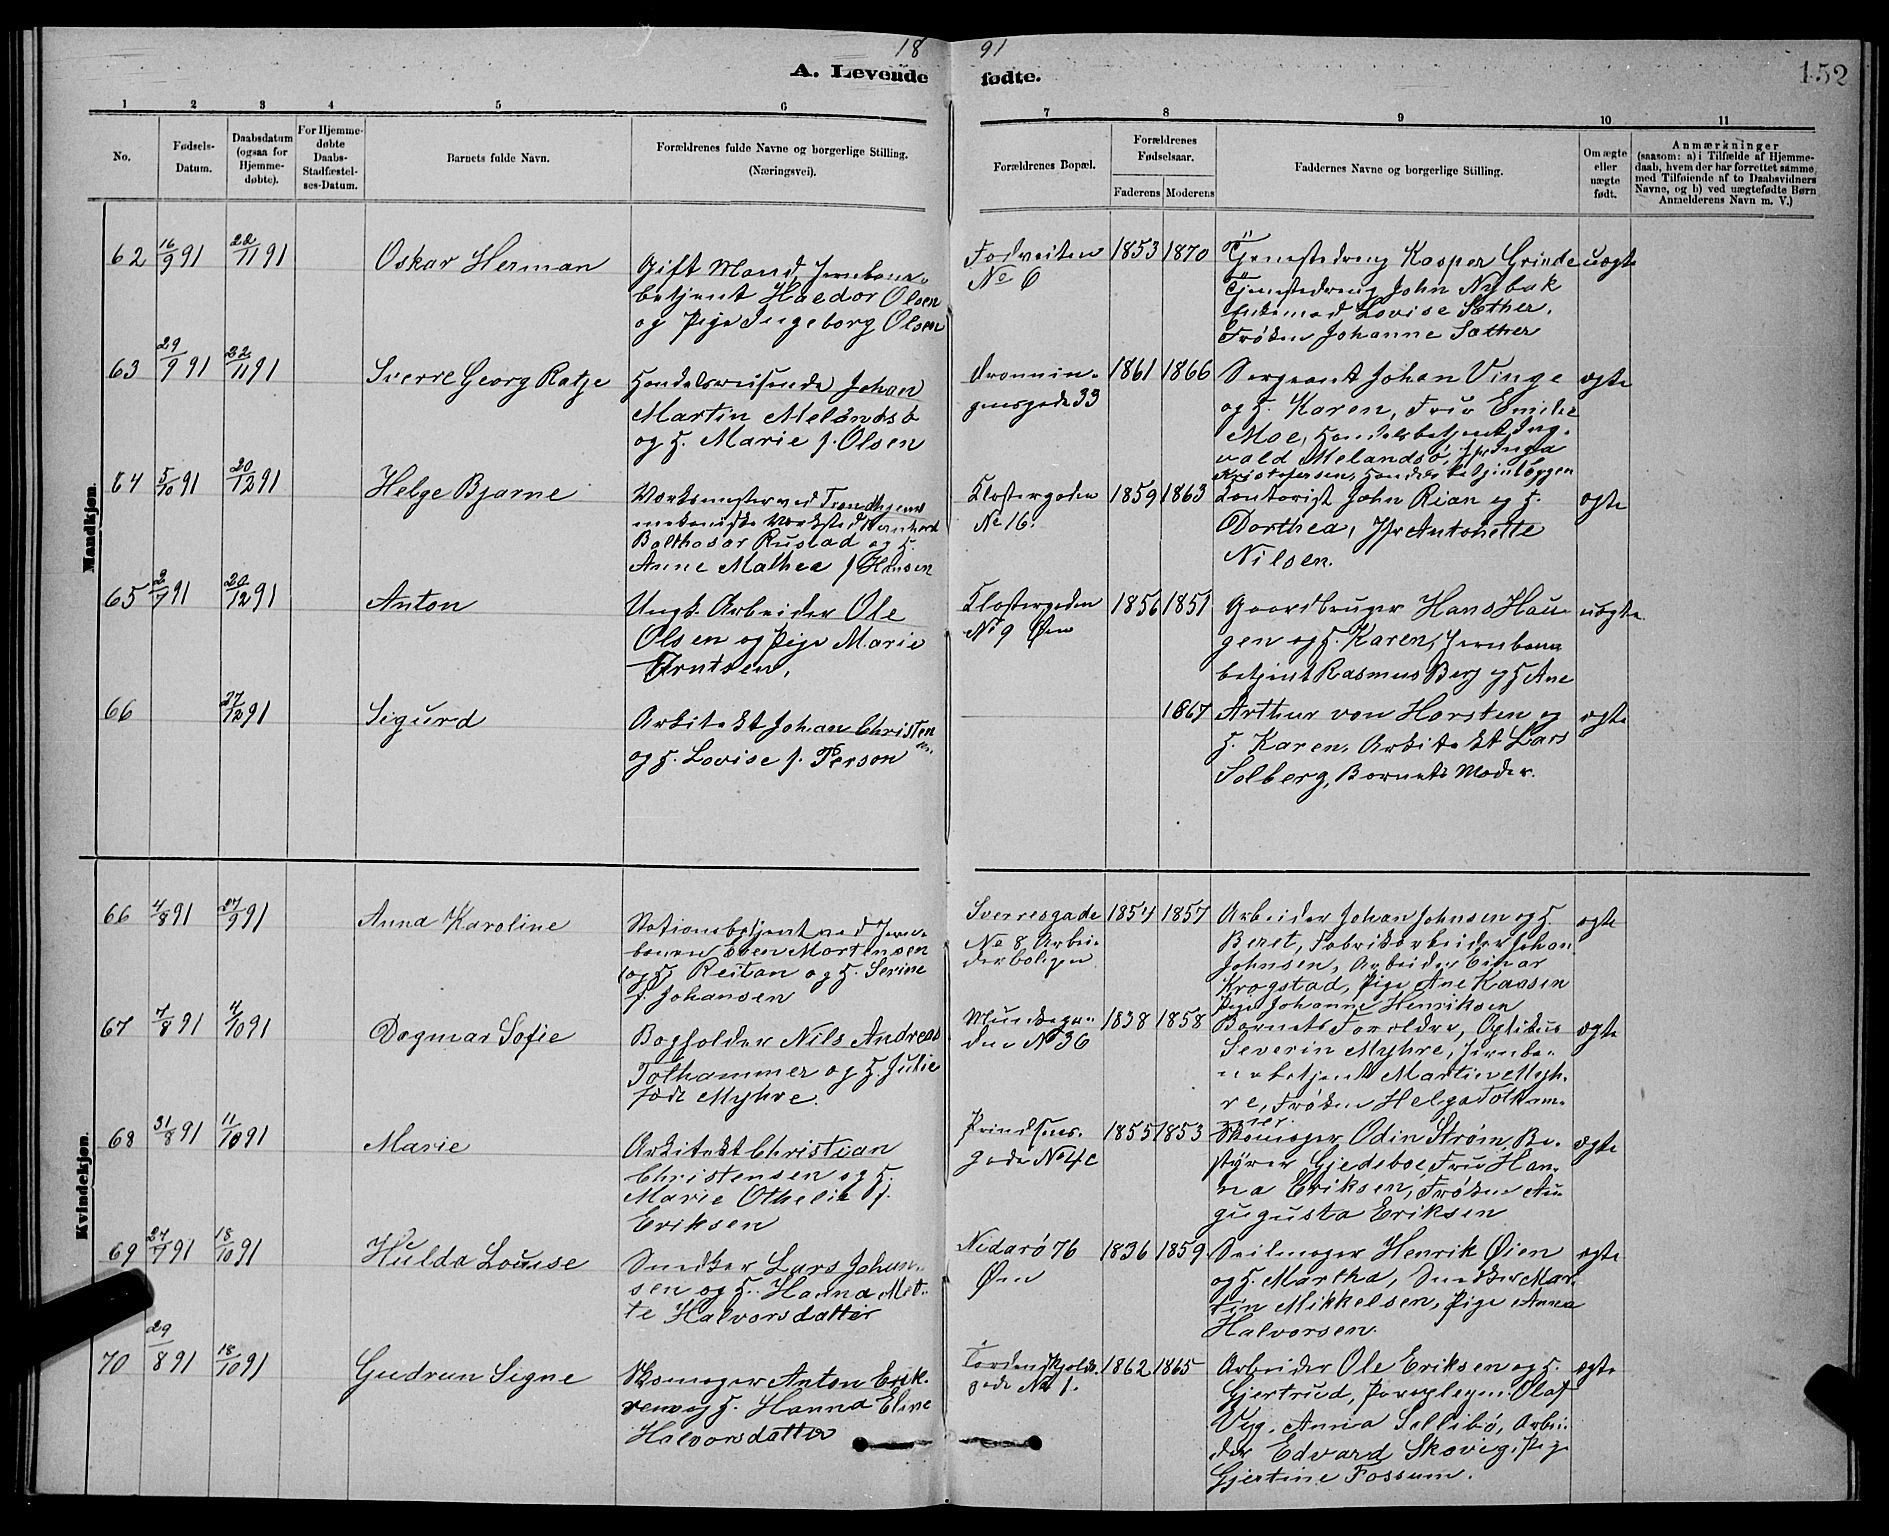 18 91
A. Levende fødte.
152
1 2 3 4 5 6 7 8 9 10 11
No.
Fødsels-
Datum.
Daabsdatum
(ogsaa for
Hjemme-
døbte).
For Hjemme-
døbte
Daabs-
Stadfæstel-
ses-Datum.
Barnets fulde Navn.
Forældrenes fulde Navne og borgerlige Stilling.
(Næringsvei).
Forældrenes Bopæl.
Forældrenes
Fødselsaar.
Faderens Moderens
Faddernes Navne og borgerlige Stilling.
Om ægte
eller
uægte
født.
Anmærkninger
(saasom: a) i Tilfælde af Hjemme-
daab, hvem der har forrettet samme,
med Tilføiende af to Daabsvidners
Navne, og b) ved uægtefødte Børn
Anmelderens Navn m. V.)
Mandkjøn.
62 16/9 91 22/11 91 Oskar Herman
Gift Mand, Jernbane-
betjent Haldor Olsen
og Pige Ingeborg Olsen
Fodveiten
No 6
1853 1870
Tjenestedreng Kasper Grinde
Tjenestedreng John Nybak
Enkemad Lovise Sæther.
Frøken Johanne Sæther
uægte
63 29/9 91 22/11 91 Sverre Georg Ratje
Handelsreisende Johan
Martin Melandsø
og H. Marie f. Olsen
Dronnin-
gensgade 33
1861 1866
Sergeant Johan Vinge
og H. Karen, Fru Emilie
Moe, Handelsbetjent Ing-
vald Melandsø, Inga
ægte
64 5/10 91 20/12 91 Helge Bjarne
Værksmester ved Trondhjems
mekaniske Værksted Bernhard
Balthasar Rustad og H.
Anne Mathea f Hansen
Klostergaden
No 16.
1859 1863
Kontorist John Rian og H.
Dorthea, Jfr Antonette
Nilsen.
ægte
65 2/7 91 20/12 91 Anton
Ungk. Arbeider Ole
Olsen og Pige Marie
Arntsen.
Klostergaden
No 9 Øen
1856 1851
Gaardbruger Hans Hau-
gen og H. Karen, Jernbane
betjent Rasmus Berg og H Ane
uægte
66 27/12 91 Sigurd
Arkitekt Johan Christen
og H. Lovise f. Person
1867
Arthur von Harsten og
H. Karen, Arkitekt Lars
Solberg, Barnets Moder.
ægte
Kvindekjøn.
66 4/8 91 27/9 91 Anna Karoline
Stationsbetjent ved Jern-
banen Even Mortensen
(og H) Reitan og H. Serine
f. Johansen
Sverresgade
No 8 Arbei-
derboligen
1854 1857
Arbeider Johan Johnsen og H.
Beret, Fabrikarbeider Johan
Johnsen, Arbeider Einar
Krogstad, Pige Ane Kaasen
Pige Johanne Henriksen
ægte
67 7/8 91 4/10 91 Dagmar Sofie
Bogholder Nils Andreas
Tolhammer og H. Julie
født Myhre.
Munkega-
den No 36
1838 1858
Barnets Forældre, Optikus
Severin Myhre, Jernba-
nebetjent Martin Myh-
re, Frøken Helga Tolham-
mer.
ægte
68 31/8 91 11/10 91 Marie
Arkitekt Christian
Christensen og H.
Marie Othelie f.
Eriksen
Prindsens-
gade No 4c
1855 1853
Skomager Odin Strøm, Be-
styrer Gjedeboe, Fru Han-
na Eriksen, Frøken Au-
gugusta Eriksen
ægte
69 27/7 91 18/10 91 Hulda Louise
Snedker Lars Johan-
sen og H. Hanna Met-
te Halvorsdatter
Nidarø 76
Øen
1836 1859
Seilmager Henrik Øien
og H. Martha, Snedker Mar-
tin Mikkelsen, Pige Anna
Halvorsen.
ægte
70 29/8 91 18/10 91 Gudrun Signe
Skomager Anton Erik-
sen og H. Hanna Eline
Halvorsdatter
Tordenskjolds-
gade No 1.
1862 1865
Arbeider Ole Eriksen og H.
Gjertrud, Olaf
Vug. Anna Sellibø, Arbei-
der Edvard Skoveg, Pige
Gjertine Fossum.
ægte